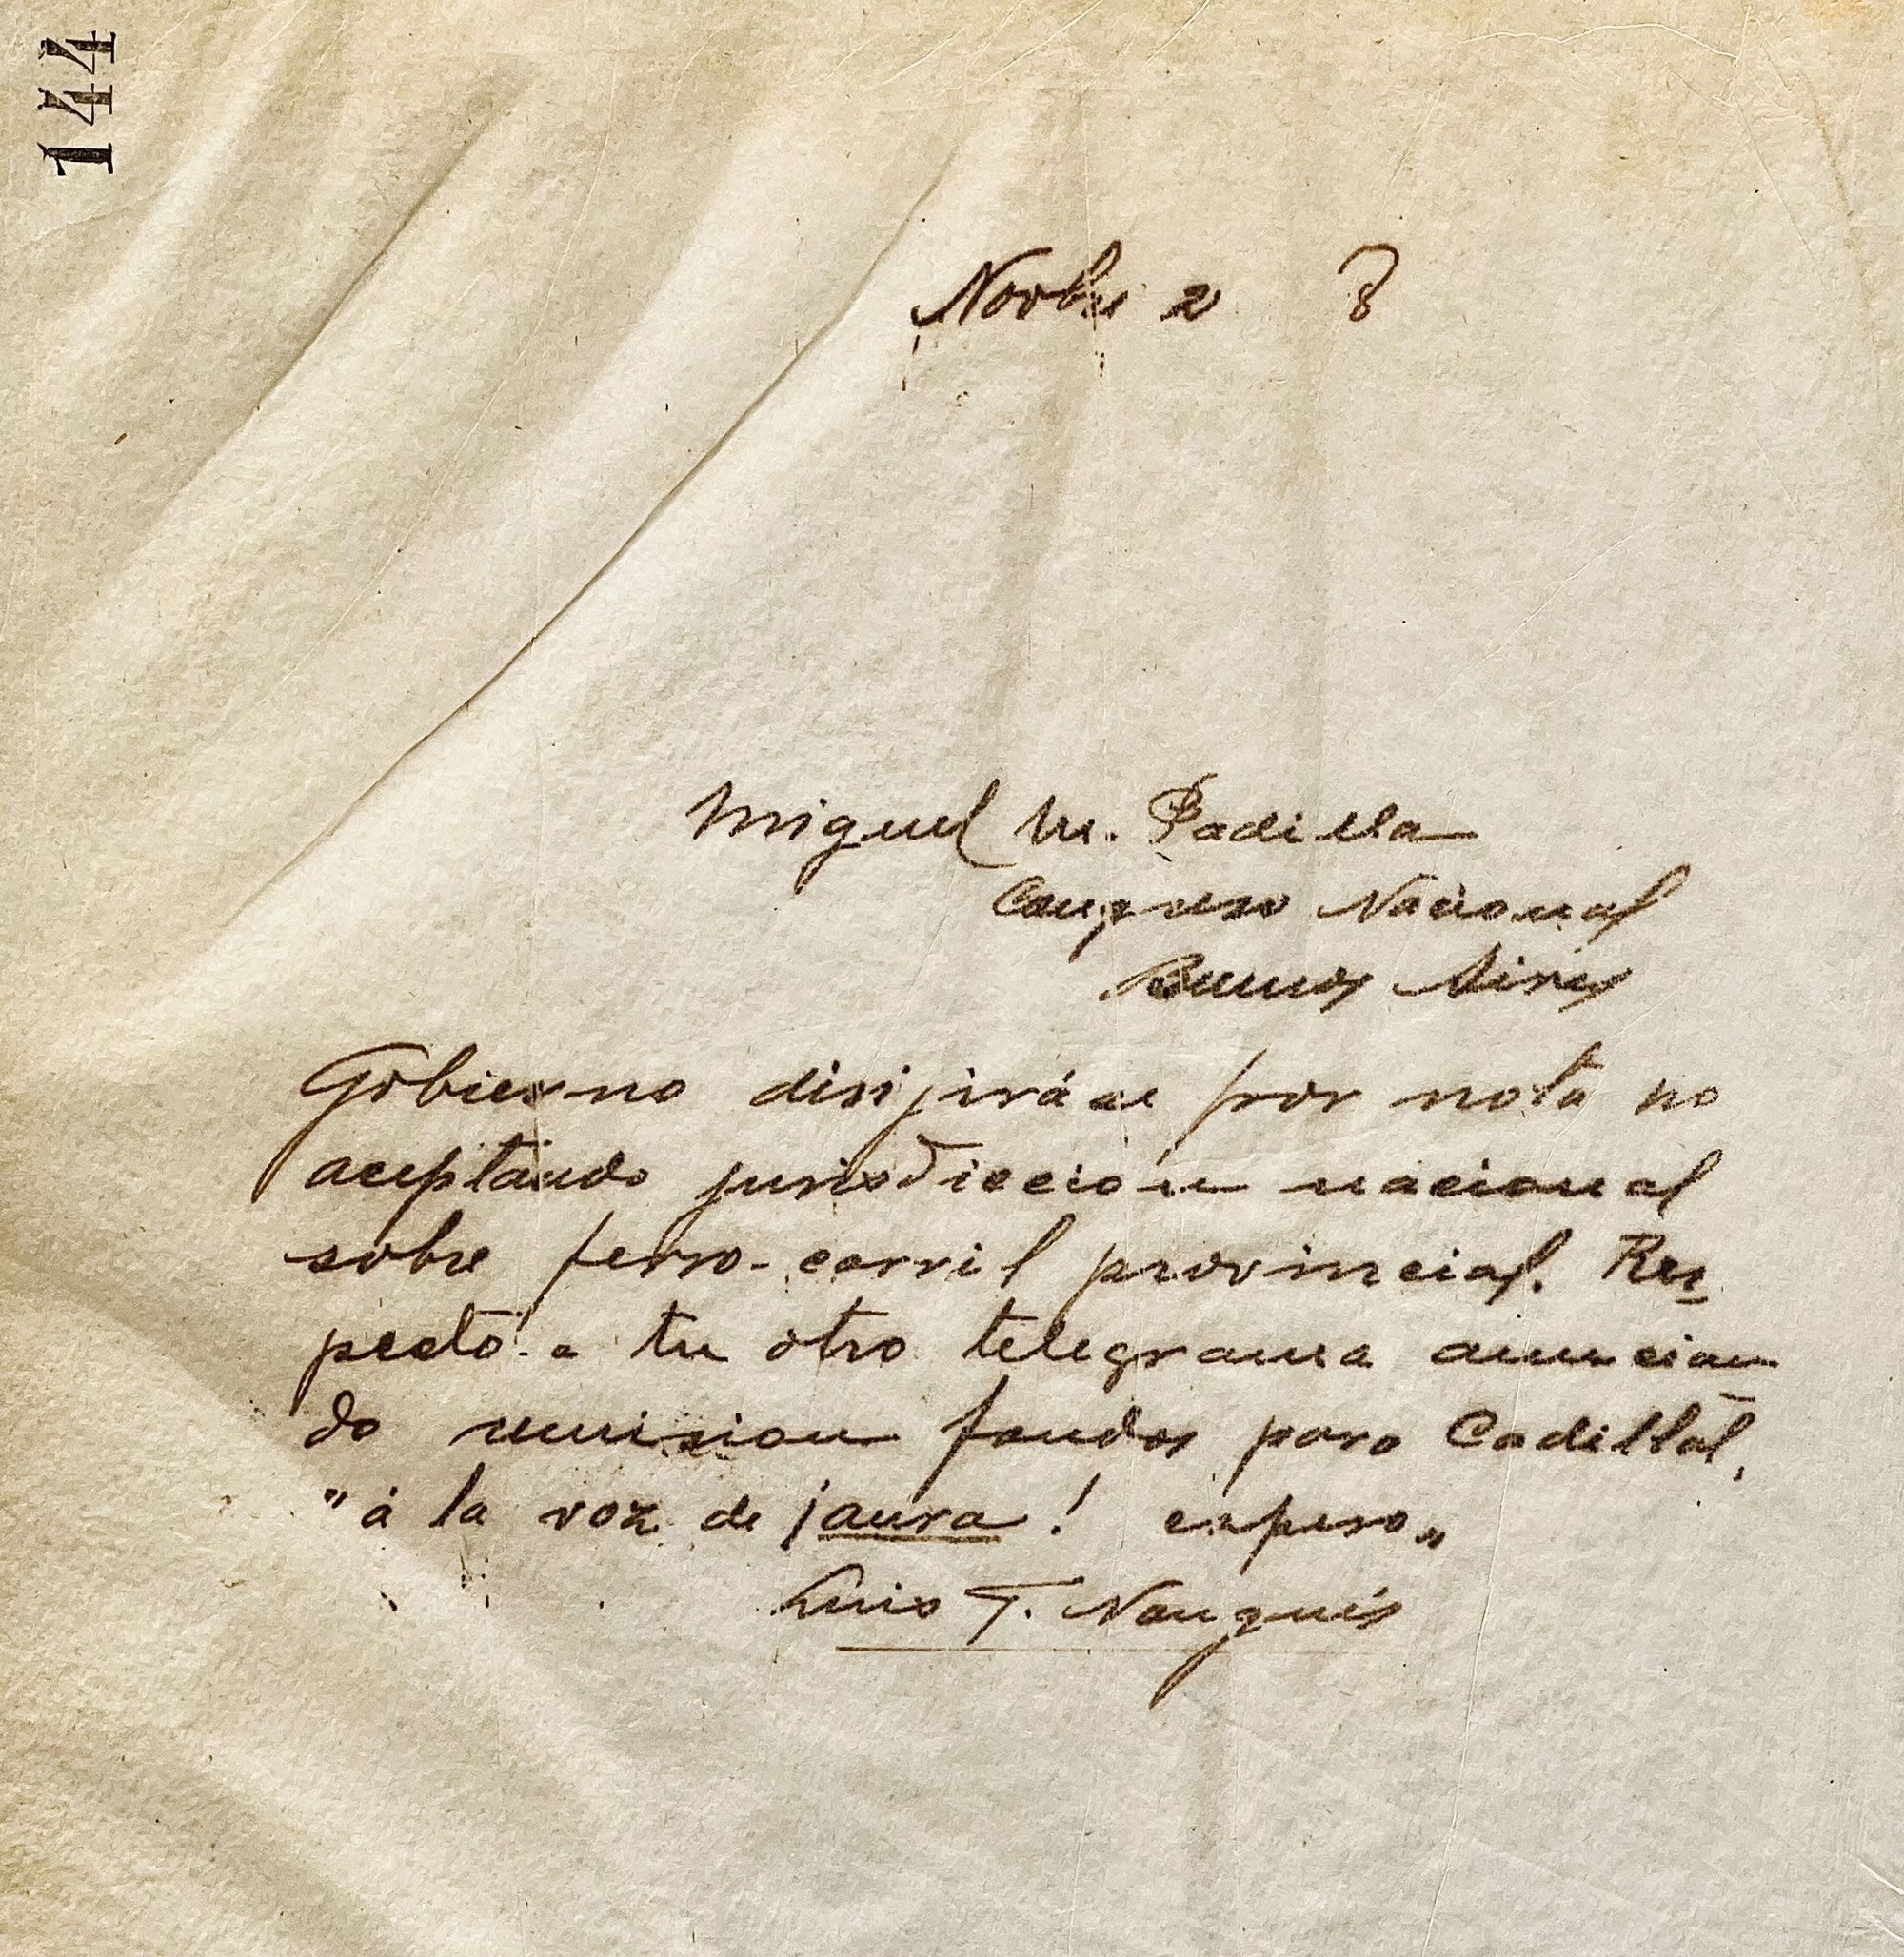 144
Novbre 2 8
Miguel M. Padilla
Congreso Nacional
Buenos Aires
Gobierno dirijiráse por nota no
aceptando jurisdiccion nacional
sobre ferro-carril provincial. Res-
pecto a tu otro telegrama anuncian
do remision fondos para Cadillal,
"á la voz de jaura! espero"
Luis F. Nougués